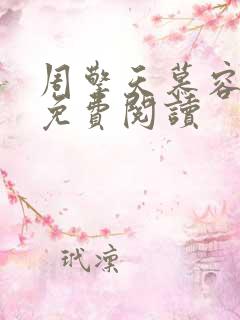 周擎天慕容
免費閱讀
玳凜